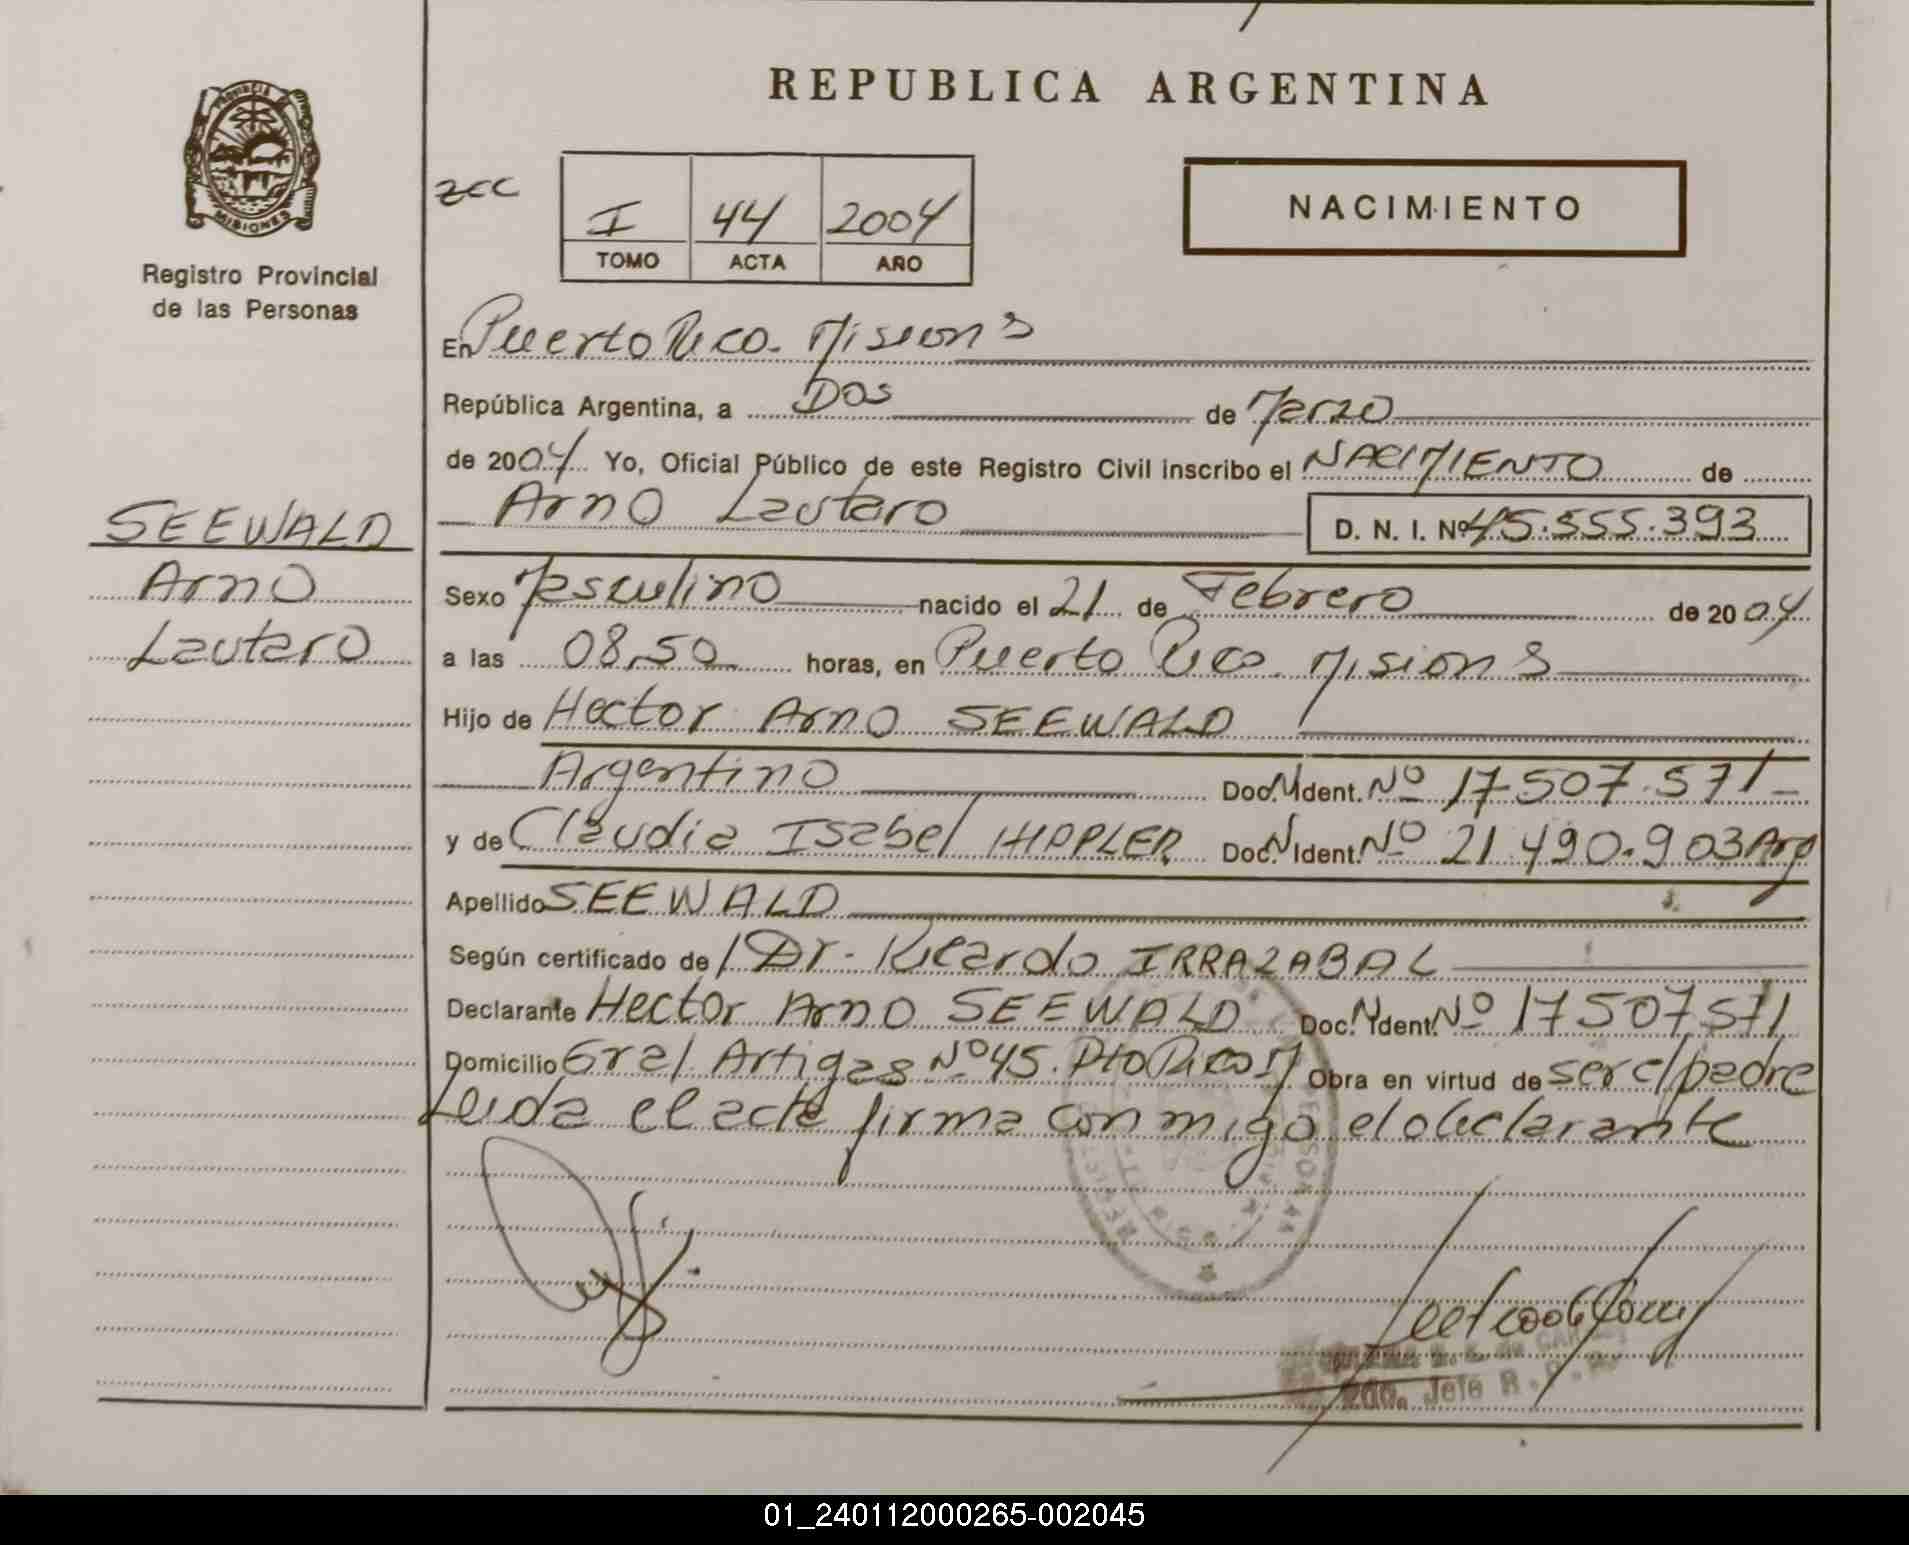 REPUBLICA ARGENTINA
PROVINCIA DE
MISIONES
Registro Provincial
de las Personas
zcc
I 44 2004
TOMO ACTA AÑO
NACIMIENTO
En Puerto Rico. Misiones
República Argentina, a Dos de Marzo
de 2004 Yo, Oficial Público de este Registro Civil inscribo el NACIMIENTO de
Arno Lautaro D. N. I. Nº 45.555.393
SEEWALD
Arno
Lautaro
Sexo Masculino nacido el 21 de Febrero de 2004
a las 08,50 horas, en Puerto Rico. Misiones
Hijo de Hector Arno SEEWALD
Argentino Doc. N. Ident. Nº 17.507.571
y de Claudia Isabel HIPPLER Doc. N. Ident. Nº 21.490.903 Arg
Apellido SEEWALD
Según certificado de Dr. Ricardo IRRAZABAL
Declarante Hector Arno SEEWALD Doc. N. Ident. Nº 17507571
Domicilio Gral. Artigas Nº 45. Pto Rico M Obra en virtud de ser el padre
Leida el acta firma con migo el declarante
Jefe R.
01_240112000265-002045